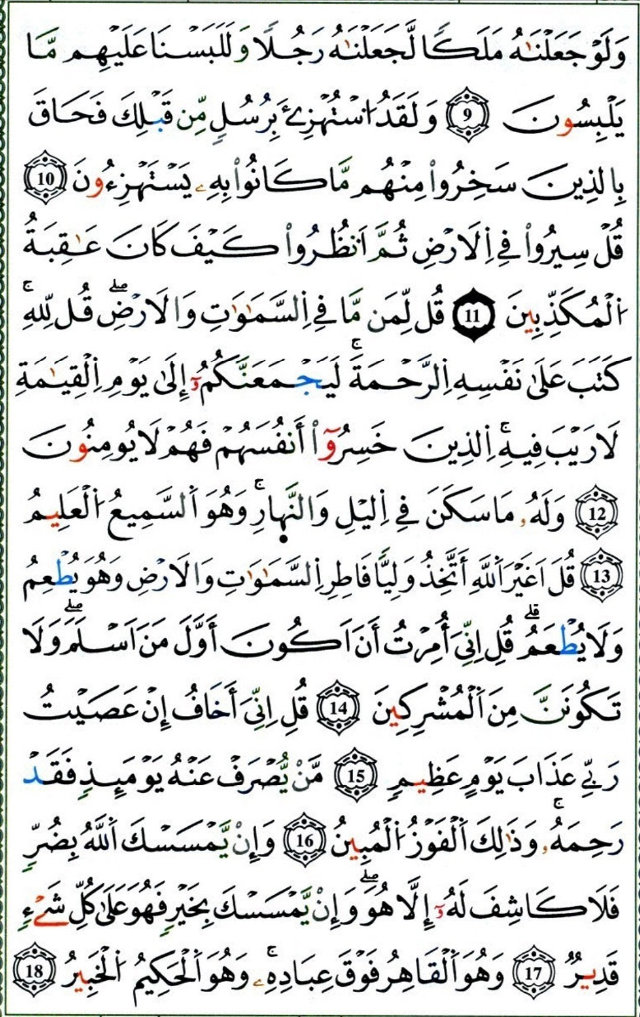 وَلَوْ جَعَلْنَٰهُ مَلَكًا لَّجَعَلْنَٰهُ رَجُلًا وَلَلَبَسْنَا عَلَيْهِم مَّا
يَلْبِسُونَ 9 وَلَقَدُ اُ۟سْتُهْزِئَ بِرُسُلٍ مِّن قَبْلِكَ فَحَاقَ
بِالذِينَ سَخِرُوا۟ مِنْهُم مَّا كَانُوا۟ بِهِۦ يَسْتَهْزِءُونَ 10
قُلْ سِيرُوا۟ فِے اِ۬لَارْضِ ثُمَّ اَ۟نظُرُوا۟ كَيْفَ كَانَ عَٰقِبَةُ
اُ۬لْمُكَذِّبِينَ 11 قُل لِّمَن مَّا فِے اِ۬لسَّمَٰوَٰتِ وَالَارْضِۖ قُل لِّلهِۚ
كَتَبَ عَلَىٰ نَفْسِهِ اِ۬لرَّحْمَةَۚ لَيَجْمَعَنَّكُمُۥٓ إِلَىٰ يَوْمِ اِ۬لْقِيَٰمَةِ
لَا رَيْبَ فِيهِۚ اِ۬لذِينَ خَسِرُوٓا۟ أَنفُسَهُمْ فَهُمْ لَا يُومِنُونَ
12 وَلَهُۥ مَا سَكَنَ فِے اِ۬ليْلِ وَالنَّهارِۚ وَهُوَ اَ۬لسَّمِيعُ اُ۬لْعَلِيمُ
13 قُلَ اَغَيْرَ اَ۬للَّهِ أَتَّخِذُ وَلِيًّا فَاطِرِ اِ۬لسَّمَٰوَٰتِ وَالَارْضِ وَهُوَ يُطْعِمُ
وَلَا يُطْعَمُۗ قُلِ اِنِّيَ أُمِرْتُ أَنَ اَكُونَ أَوَّلَ مَنَ اَسْلَمَۖ وَلَا
تَكُونَنَّ مِنَ اَ۬لْمُشْرِكِينَ 14 قُلِ اِنِّيَ أَخَافُ إِنْ عَصَيْتُ
رَبِّے عَذَابَ يَوْمٍ عَظِيمٍ 15 مَّنْ يُّصْرَفْ عَنْهُ يَوْمَئِذٍ فَقَدْ
رَحِمَهُۥۚ وَذَٰلِكَ اَ۬لْفَوْزُ اُ۬لْمُبِينُ 16 وَإِنْ يَّمْسَسْكَ اَ۬للَّهُ بِضُرٍّ
فَلَا كَاشِفَ لَهُۥٓ إِلَّا هُوَۖ وَإِنْ يَّمْسَسْكَ بِخَيْرٍ فَهُوَ عَلَىٰ كُلِّ شَےْءٍ
قَدِيرٌ 17 وَهُوَ اَ۬لْقَاهِرُ فَوْقَ عِبَادِهِۦۚ وَهُوَ اَ۬لْحَكِيمُ اُ۬لْخَبِيرُ 18